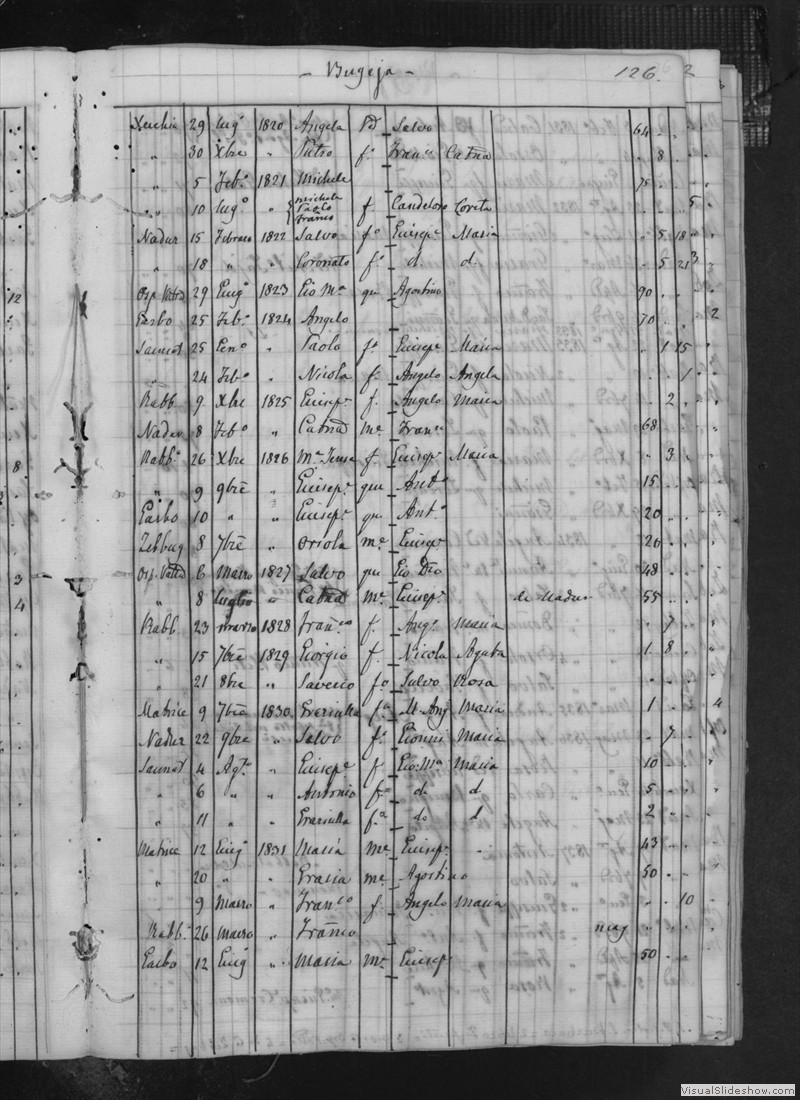 - Bugeja -
126. 2
Xeuchia 29 Lug° 1820 Angela Vd Salvo 64 " "
" 30 Xbre " Pietro f° Franc° Catña " 8 "
" 5 Feb° 1821 Michele 75 " "
" 10 Lug° " { Michele Paolo Franco f Candeloro Loreta " " 5
Nadur 15 Febraro 1822 Salvo f° Giusepe Maria " 5 18 "
" 18 " " Coronato f° d. d. " 5 21 3
Osp. Vittra 29 Giug° 1823 Gio Ma qu Agostino 90 " "
12
Garbo 25 Feb° 1824 Angelo 70 " " 2
Sannat 25 Gen° " Paolo f° Giusepe Maria " 1 15
" 24 Feb° " Nicola f Angelo Angela " " 1
Rabb 9 Xbre 1825 Giusepe f. Angelo Maria " 2 "
Nadur 8 Feb° " Catña me Franc° 68
Rabb° 26 Xbre 1826 Ma Teresa f. Giusepe Maria " 3 "
8
" 9 9bre " Giusepe qu Ant° 15
Garbo 10 " " Giusepe qu Ant° 20
Zebbug 8 7bre " Orsola me Giusepe 26
Osp. Vittra 6 Marzo 1827 Salvo qu Gio 48
3
" 8 Luglio " Catña me Giusepe de Nadur 55
4
Rabb. 23 Marzo 1828 Franco f. Ang° Maria " 7 "
" 15 7bre 1829 Giorgio f. Nicola Agata 1 8 "
" 21 8bre " Saverio f° Salvo Rosa
Matrice 9 7bre 1830 Graziulla fa M. Ang Maria 1 " " 4
Nadur 22 9bre " Salvo f° Gionni Maria " 7 "
Sannat 4 Agt° " Giusepe f Gio: Ma Maria 10
" 6 " " Antonio f° d. d 5
" 11 " " Graziulla fa do d 2
Matrice 12 Giug° 1831 Maria me Giusepe 43
" 20 " " Grazia me Agostino 50
" 9 Marzo " Franco f. Angelo Maria " " 10
Rabb. 26 Marzo " Franco
Garbo 12 Giug " Maria me Giusepe 50
VisualSlideshow.com